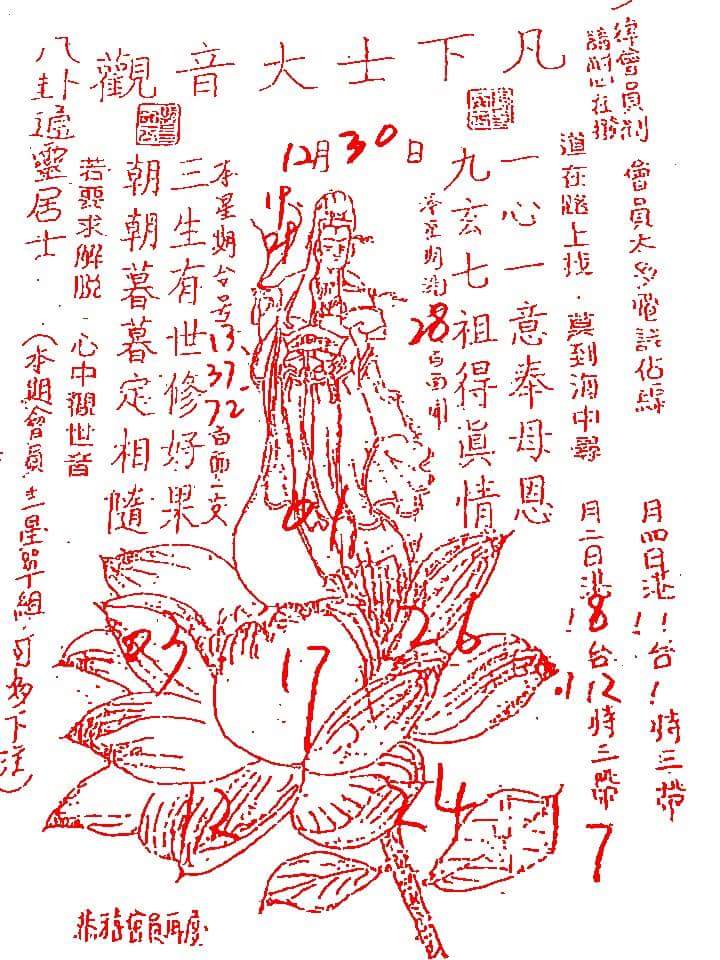 觀音大士下凡
一律會員制
請耐心在撥
會員太多電話佔線
道在路上找．莫到海中尋
月四日港!!台!時三帶
月二日港!8台.!12時三帶
7
12月30日
一心一意奉母恩
九玄七祖得真情
28
本星期台号13.37-72
三生有世修好果
朝朝暮暮定相隨
若要求解脫 心中觀世音
八卦遁靈居士
(本期會員三星單組．可多下注)
19
29
01
03
17
26
12
24
恭禧會員再度